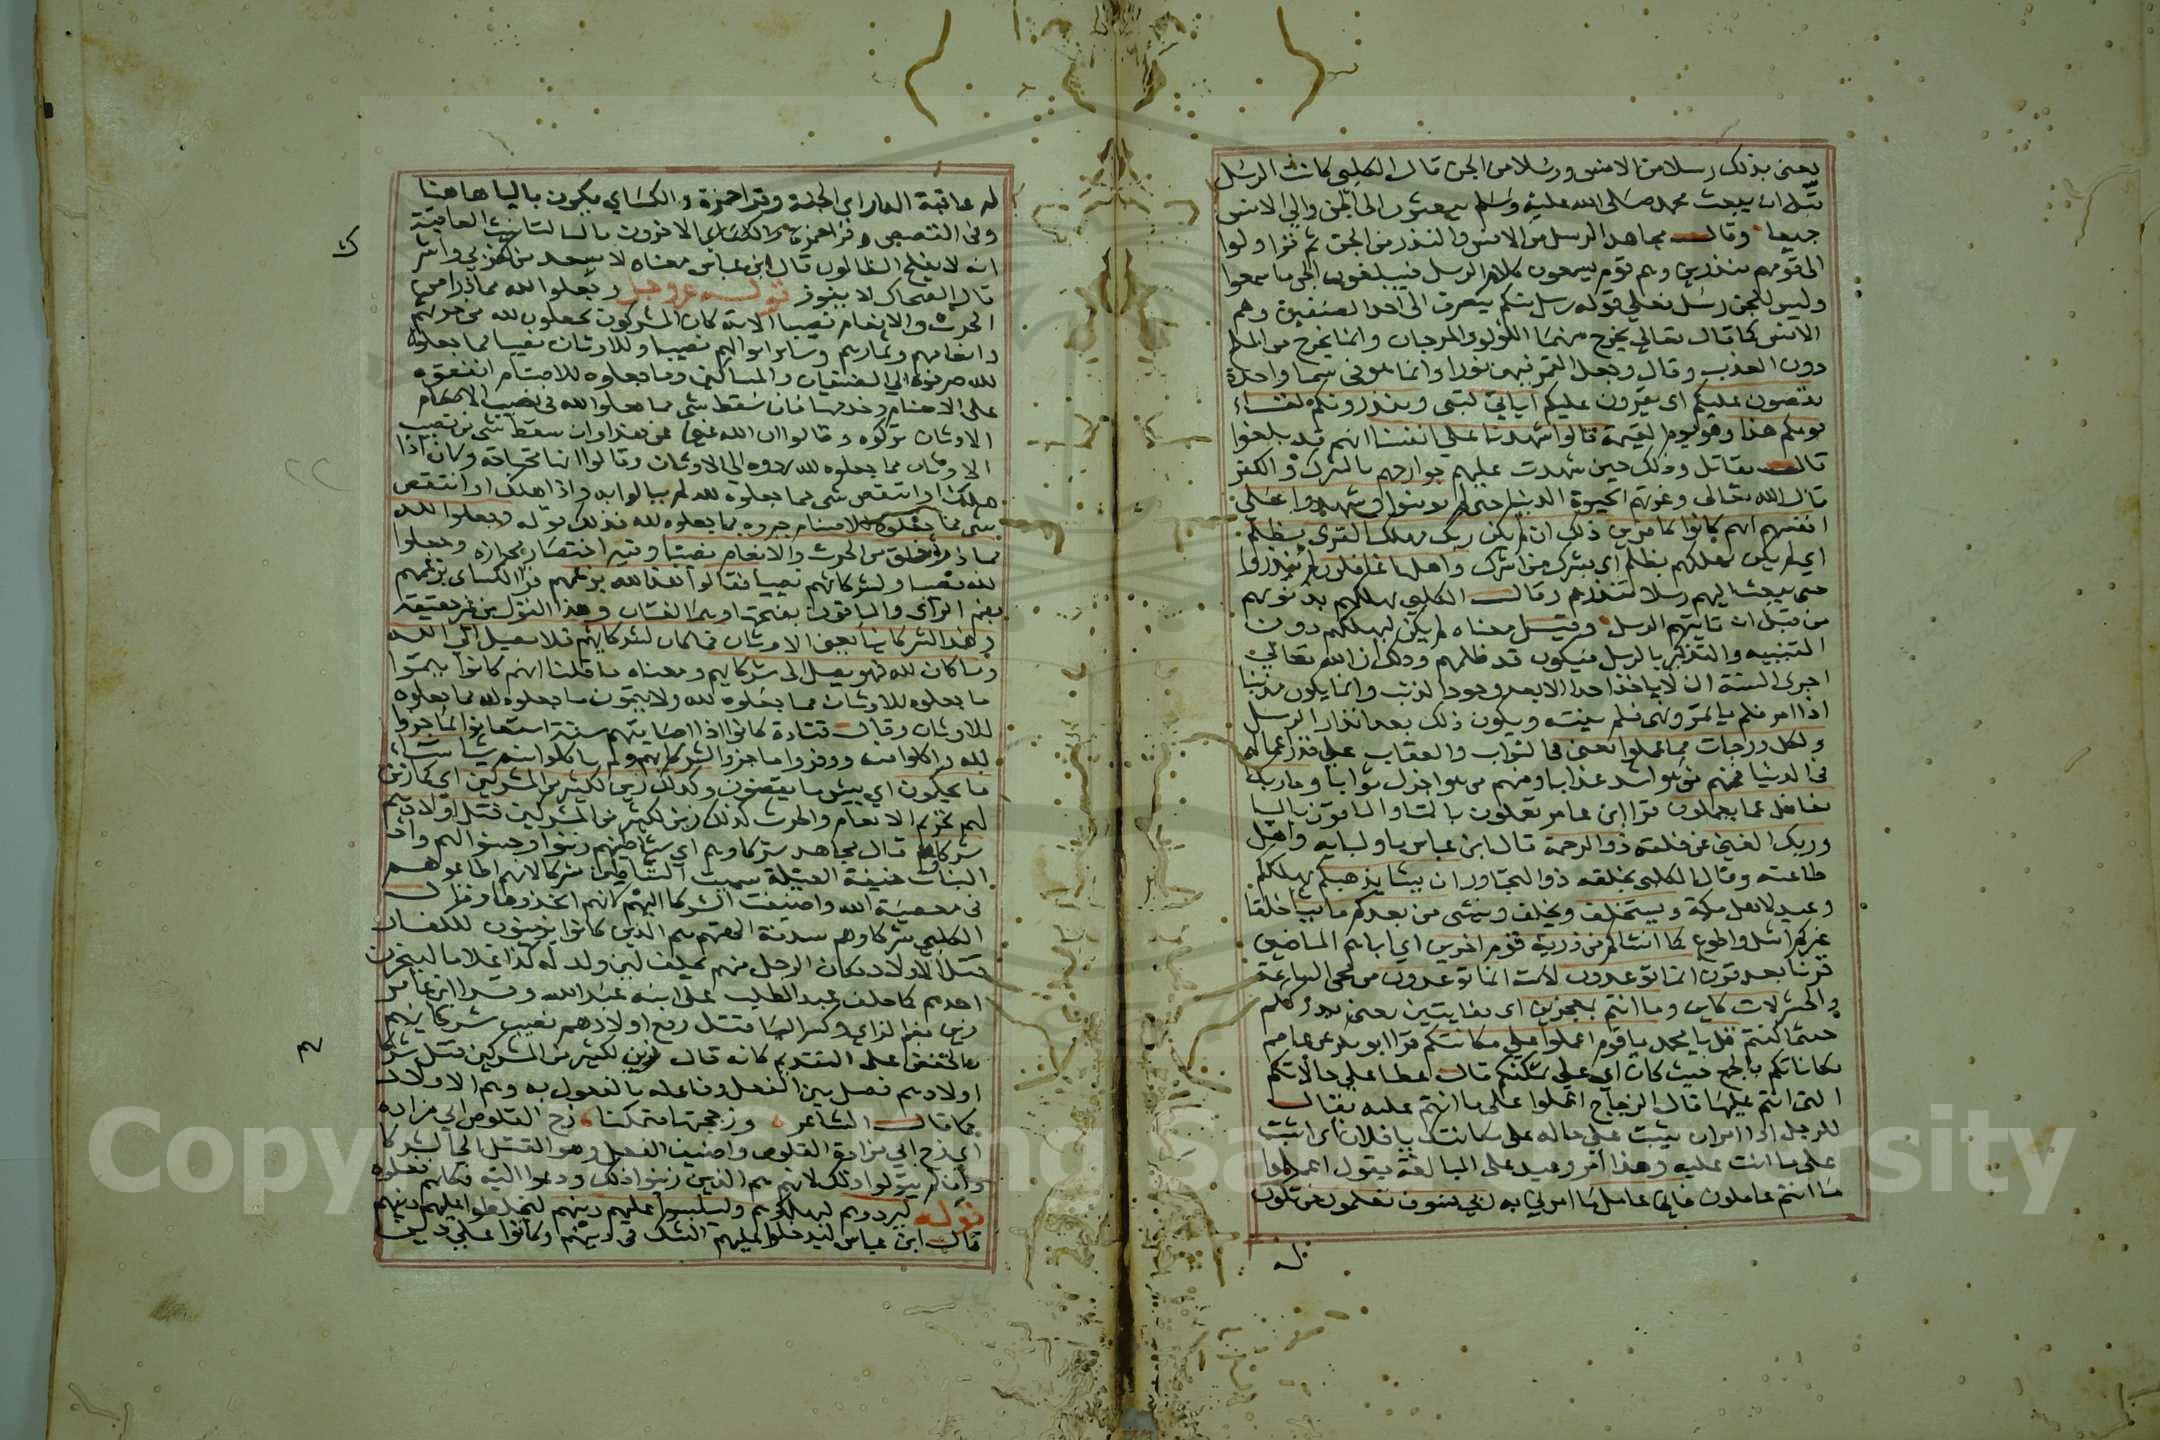 يعني بذلك رسلا من الانس ورسلا من الجن قال الكلبي كانت الرسل
قبل ان يبعث محمد صلى الله عليه وسلم يبعثون الى الجن والي الانس
جميعا وقال مجاهد الرسل من الانس والنذر من الجن ثم قرا ولوا
الى قومهم منذرين وهم قوم يسمعون كلام الرسل فيبلغون الجن ما سمعوا
وليس للجن رسل فعلي قوله رسل منكم ينصرف الى احد الصنفين وهم
الانس كما قال تعالي يخرج منهما اللولو والمرجان وانما يخرج من الملح
دون العذب وقال وجعل القمر فيهن نورا وانما هو في سما واحدة
يقصون عليكم اى يقرون عليكم آياتي كتبي وينذرونكم لقاء
يومكم هذا وهو يوم القيمة قالوا شهدنا على انفسنا انهم قد بلغوا
قال مقاتل وذلك حين شهدت عليهم جوارحهم بالشرك والكفر
قال الله تعالى وغرتهم الحيوة الدنيا حتى لم يومنوا وشهدوا على
انفسهم انهم كانوا كافرين ذلك ان لم يكن ربك مهلك القرى بظلم
اي لم يكن مهلكهم بظلم اي بشرك من اشرك واهلها غافلون لم ينذروا
حتى يبعث اليهم رسلا تنذرهم وقال الكلبي يهلكهم بذنوبهم
من قبل ان تاتيهم الرسل وقيل معناه لم يكن ليهلكهم دون
التنبيه والتذكير بالرسل فيكون قد ظلمهم وذلك ان الله تعالي
اجرى السنة ان لا ياخذ احدا الا بعد وجود الذنب وانما يكون مذنبا
اذا امر فلم ياتمر ونهى فلم ينته ويكون ذلك بعد انذار الرسل
ولكل درجات مما عملوا يعني في الثواب والعقاب على قدر اعمالهم
في الدنيا فمنهم من هو اشد عذابا ومنهم من هو اجزل ثوابا وما ربك
بغافل عما يعملون قرا ابن عامر تعملون بالتا والباقون باليا
وربك الغني عن خلقه ذو الرحمة قال ابن عباس باوليايه واهل
طاعته وقال الكلبي بخلقه ذو التجاوز ان يشا يذهبكم يهلككم
وعيد لاهل مكة ويستخلف ويخلف وينشى من بعدكم ما يشا خلقا
غيركم امثل واطوع كما انشاكم من ذرية قوم اخرين اي ابايهم الماضين
قرنا بعد قرن انما توعدون لات انما توعدون من مجى الساعة
والحشر لات كاين وما انتم بمعجزين اى بفايتين يعنى يدرككم
حيثما كنتم قل يا محمد يا قوم اعملوا على مكانتكم قرا ابو بكر عن عاصم
مكاناتكم بالجمع حيث كان اي على تمكنكم قال عطا على حالاتكم
التى انتم عليها قال الزجاج اعملوا على ما انتم عليه يقال
للرجل اذا امر ان يثبت على حاله على مكانتك يا فلان اى اثبت
على ما انت عليه وهذا امر وعيد على المبالغة يقول اعملوا
ما انتم عاملون فاني عامل ما امرني به ربي فسوف تعلمون من تكون
له عاقبة الدار اى الجنة وقرا حمزة والكساي يكون باليا هاهنا
وفي القصص وقرا الاخرون بالتا لتانيث العاقبة
انه لا يفلح الظالمون قال ابن عباس معناه لا يسعد من كفر بي واشرك
قال الضحاك لا يفوز قوله عز وجل وجعلوا لله مما ذرا من
الحرث والانعام نصيبا الاية كان المشركون يجعلون لله من حروثهم
وانعامهم وثمارهم وساير اموالهم نصيبا وللاوثان نصيبا فما جعلوه
لله صرفوه الي الضيفان والمساكين وما جعلوه للاصنام انفقوه
على الاصنام وخدمها فان سقط شى مما جعلوا لله في نصيب
الاوثان تركوه وقالوا ان الله غني عن هذا وان سقط شى من نصيب
الاوثان مما جعلوه لله ردوه الي الاوثان وقالوا انها محتاجة وكان اذا
هلك او انتقص شى مما جعلوه لله لم يبالوا به واذا هلك او انتقص
شى مما جعلوه للاصنام جبروه بما جعلوه لله فذلك قوله وجعلوا لله
مما ذرا خلق من الحرث والانعام نصيبا وفيه اختصار مجازه وجعلوا
لله نصيبا ولشركائهم نصيبا فقالوا هذا لله بزعمهم قرا الكساى بزعمهم
بضم الزاى والباقون بفتحها وهما لغتان وهذا القول من غير حقيقة
وهذا لشركاينا يعني الاوثان فما كان لشركايهم فلا يصل الى الله
وما كان لله فهو يصل الى شركايهم ومعناه ما قلنا انهم كانوا يتمون
ما جعلوه للاوثان مما جعلوه لله ولا يتمون ما جعلوه لله مما جعلوه
للاوثان وقال قتادة كانوا اذا اصابتهم سنة استعانوا بما جزوا
لله واكلوا منه ووفروا ما جزوا لشركائهم ولم ياكلوا منه شيا ساء
ما يحكمون اي بيس ما يقضون وكذلك زين لكثير من المشركين اي كما زين
لهم تحريم الانعام والحرث كذلك زين لكثير من المشركين قتل اولادهم
شركاوهم قال مجاهد شركاوهم اى شياطينهم زينوا وحسنوا لهم واد
البنات خيفة العيلة سميت الشياطين شركا لانهم اطاعوهم
في معصية الله واضيفت الشركا اليهم لانهم اتخذوها وقال
الكلبي شركاوهم سدنة الهتهم هم الذين كانوا يزينون للكفار
قتل الاولاد فكان الرجل منهم يحلف لين ولد له كذا غلاما لينحرن
احدهم كما حلف عبد المطلب على ابنه عبد الله وقرا ابن عامر
زين بضم الزاي وكسر اليا قتل رفع اولادهم نصب شركايهم
بالخفض على التقديم كانه قال زين لكثير من المشركين قتل شركا
اولادهم فصل بين الفعل وفاعله بالمفعول به وهم الاولاد
كما قال الشاعر وزججتها متمكنا زج القلوص ابي مزاده
اى زج ابي مزادة القلوص واضيف الفعل وهو القتل الى الشركا
وان لم يتولوا ذلك لانهم هم الذين زينوا ذلك ودعوا اليه فكانهم فعلوه
قوله ليردوهم ليهلكوهم وليلبسوا عليهم دينهم ليخلطوا عليهم دينهم
قال ابن عباس ليدخلوا عليهم الشك في دينهم وكانوا على دين